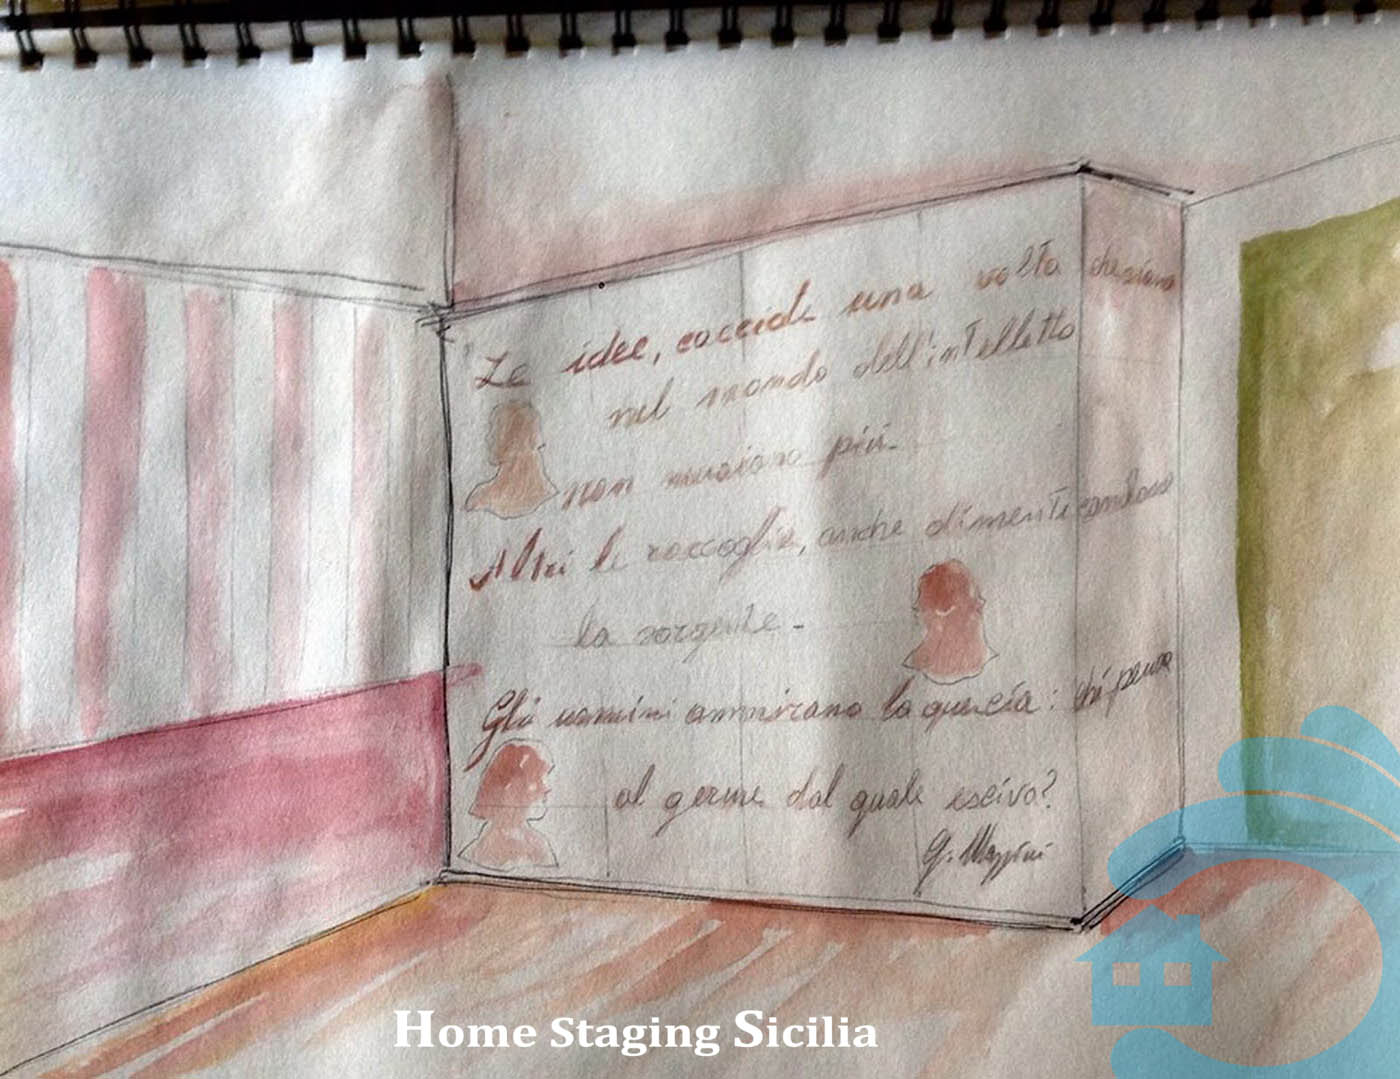 Le idee, una volta che siano
nel mondo dell'intelletto
non muoiono più.
Altri le raccoglie, anche dimenticandone
la sorgente.
Gli uomini ammirano la quercia: chi pensa
al germe dal quale esciva?
G. Mazzini
Home Staging Sicilia